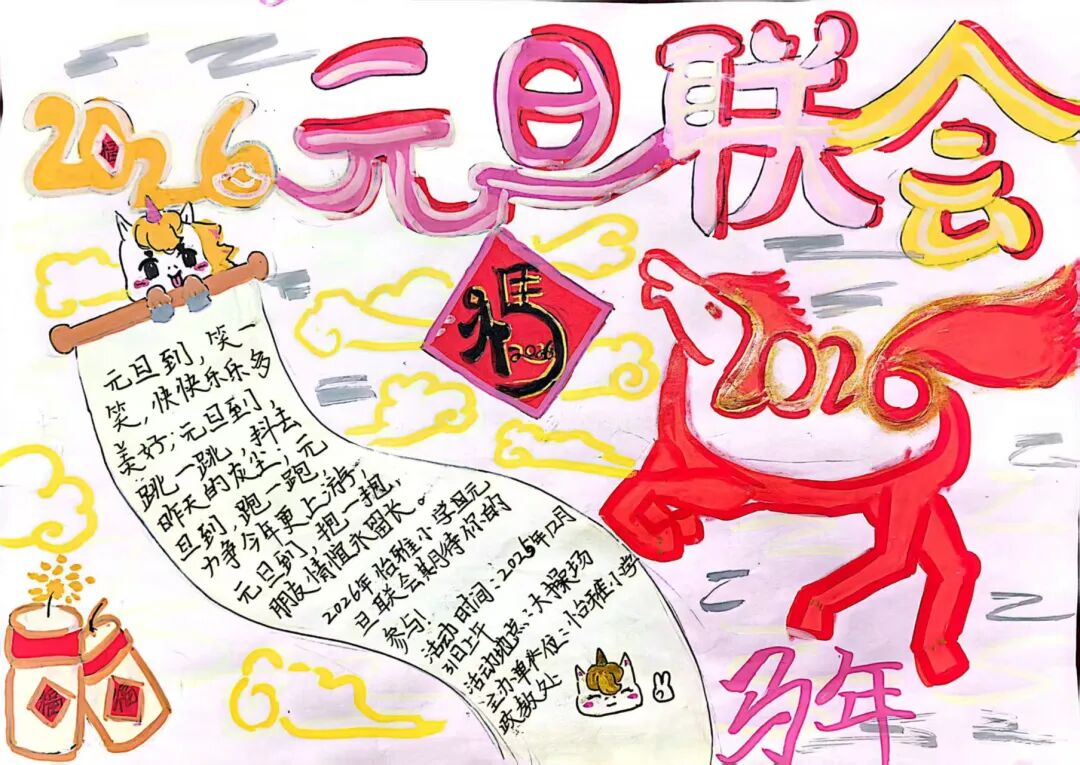 2026
元旦联会
福
2026
2026
元旦到，笑一
笑，快快乐乐多
美好；元旦到，
跳一跳，抖去
昨天的灰尘；元
旦到，跑一跑，
力争今年更上游；
元旦到，抱一抱，
朋友情谊永留长。
2026年怡雅小学迎元
旦联会期待你的
参与！
活动时间：2025年12月
31日上午
活动地点：大操场
主办单位：怡雅小学
政教处
福
福
马年